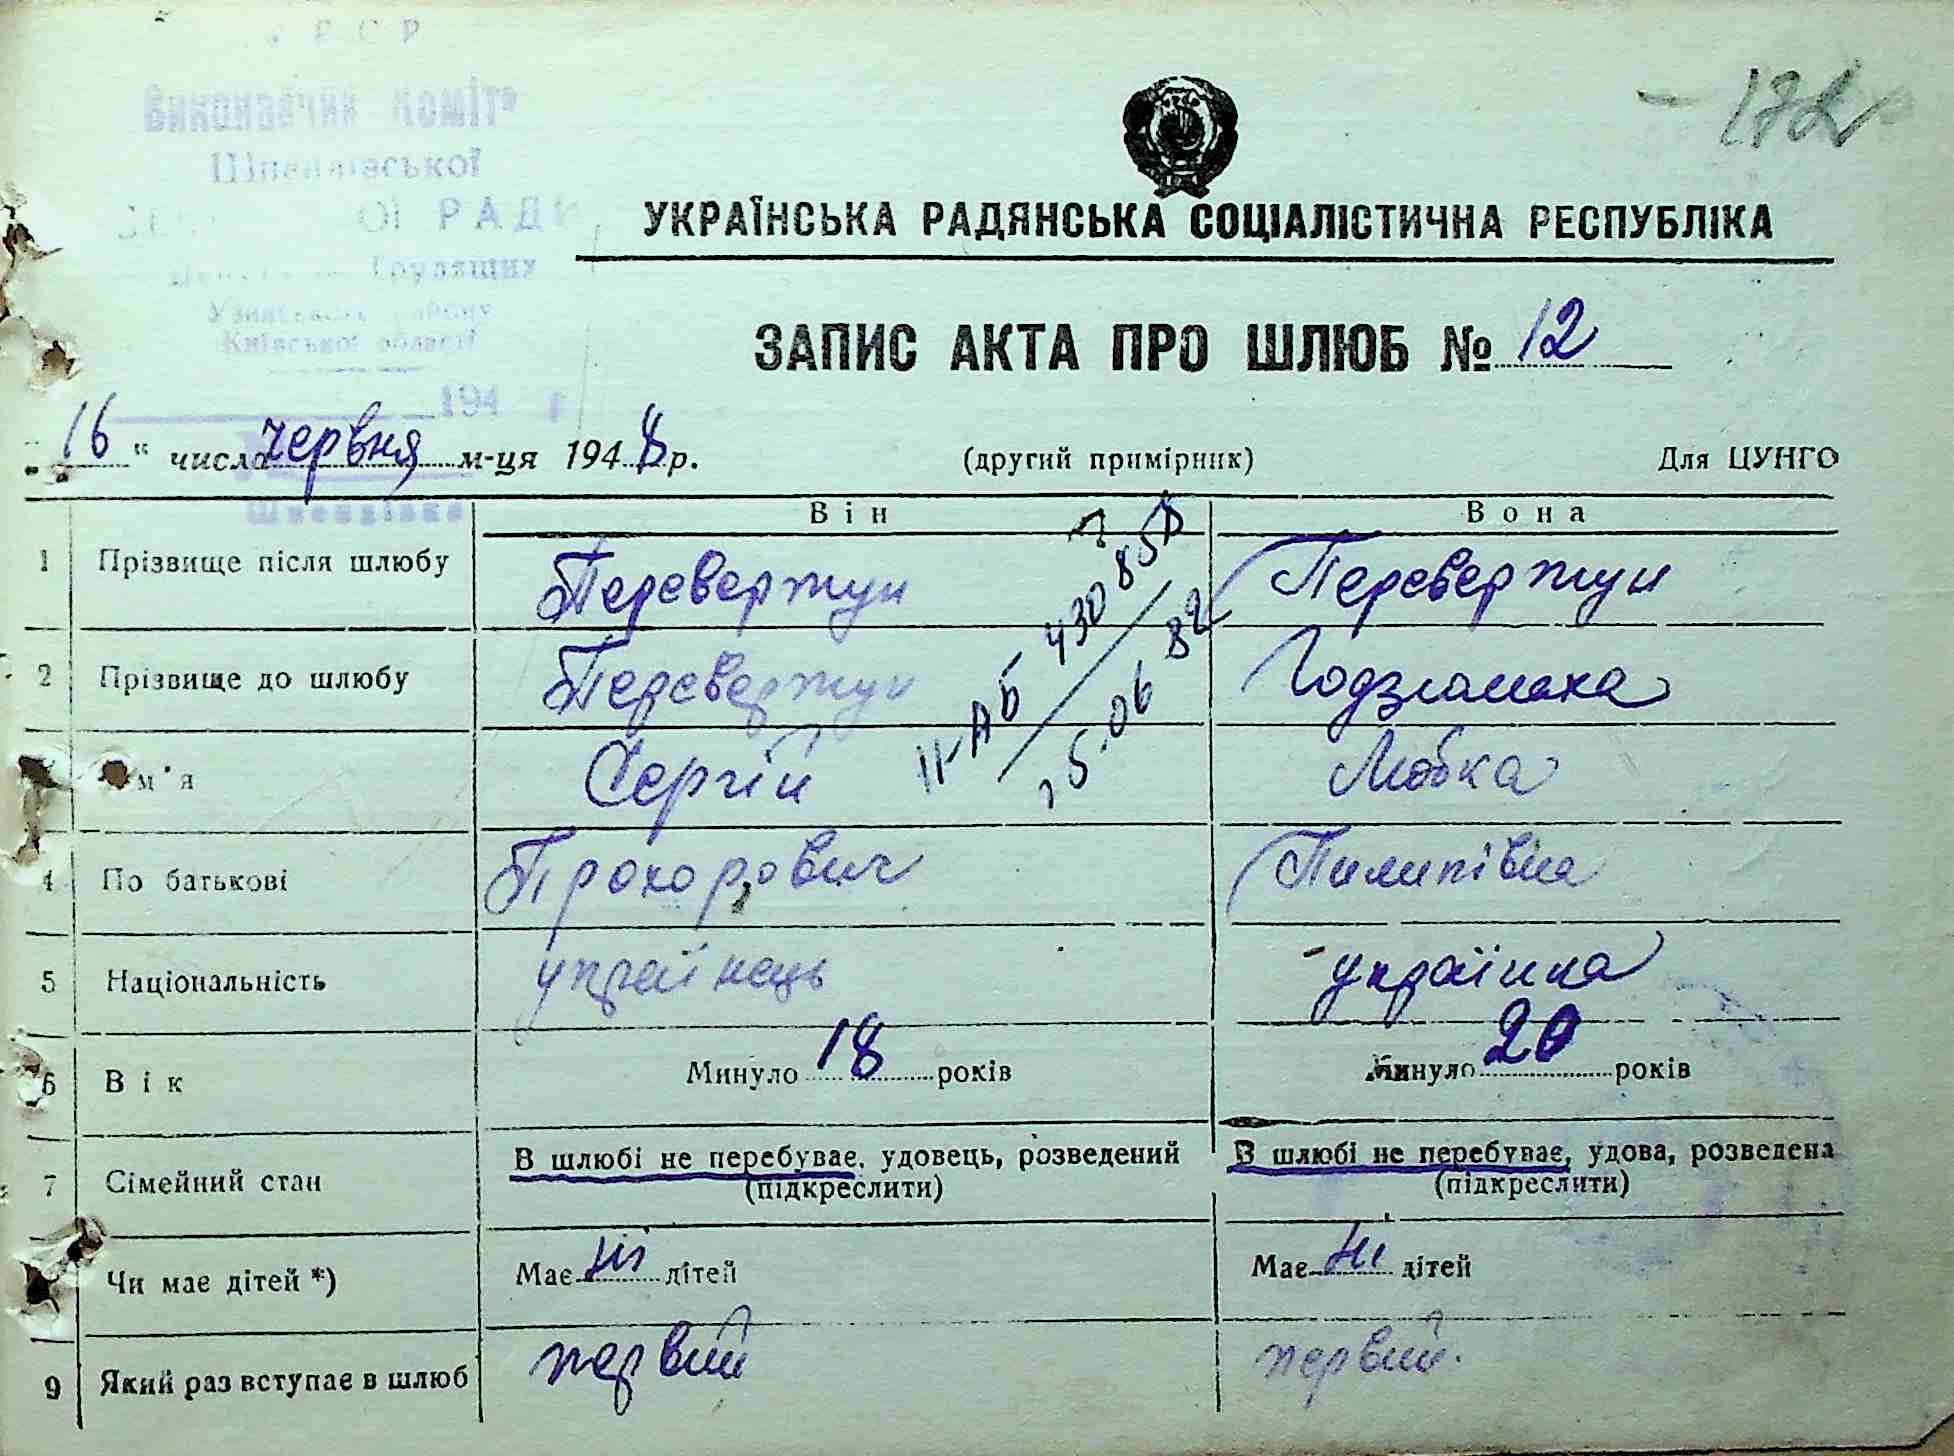 Виконавчий комітет
Шпендівської
РАДИ
Трудящих
Узинського району
Київської області
194
Шпендівка
172
УКРАЇНСЬКА РАДЯНСЬКА СОЦІАЛІСТИЧНА РЕСПУБЛІКА
ЗАПИС АКТА ПРО ШЛЮБ № 12
"16" числа червня м-ця 1948 р. (другий примірник) Для ЦУНГО
Він Вона
1 Прізвище після шлюбу Перевертун Перевертун
2 Прізвище до шлюбу Перевертун
ім'я Сергій Любка
4 По батькові Прохорович Пилипівна
5 Національність українець українка
6 Вік Минуло 18 років Минуло 20 років
7 Сімейний стан В шлюбі не перебуває, удовець, розведений В шлюбі не перебуває, удова, розведена
(підкреслити) (підкреслити)
Чи має дітей *) Має ні дітей Має ні дітей
9 Який раз вступає в шлюб первий первий.
II-АБ 430857
15.06 82